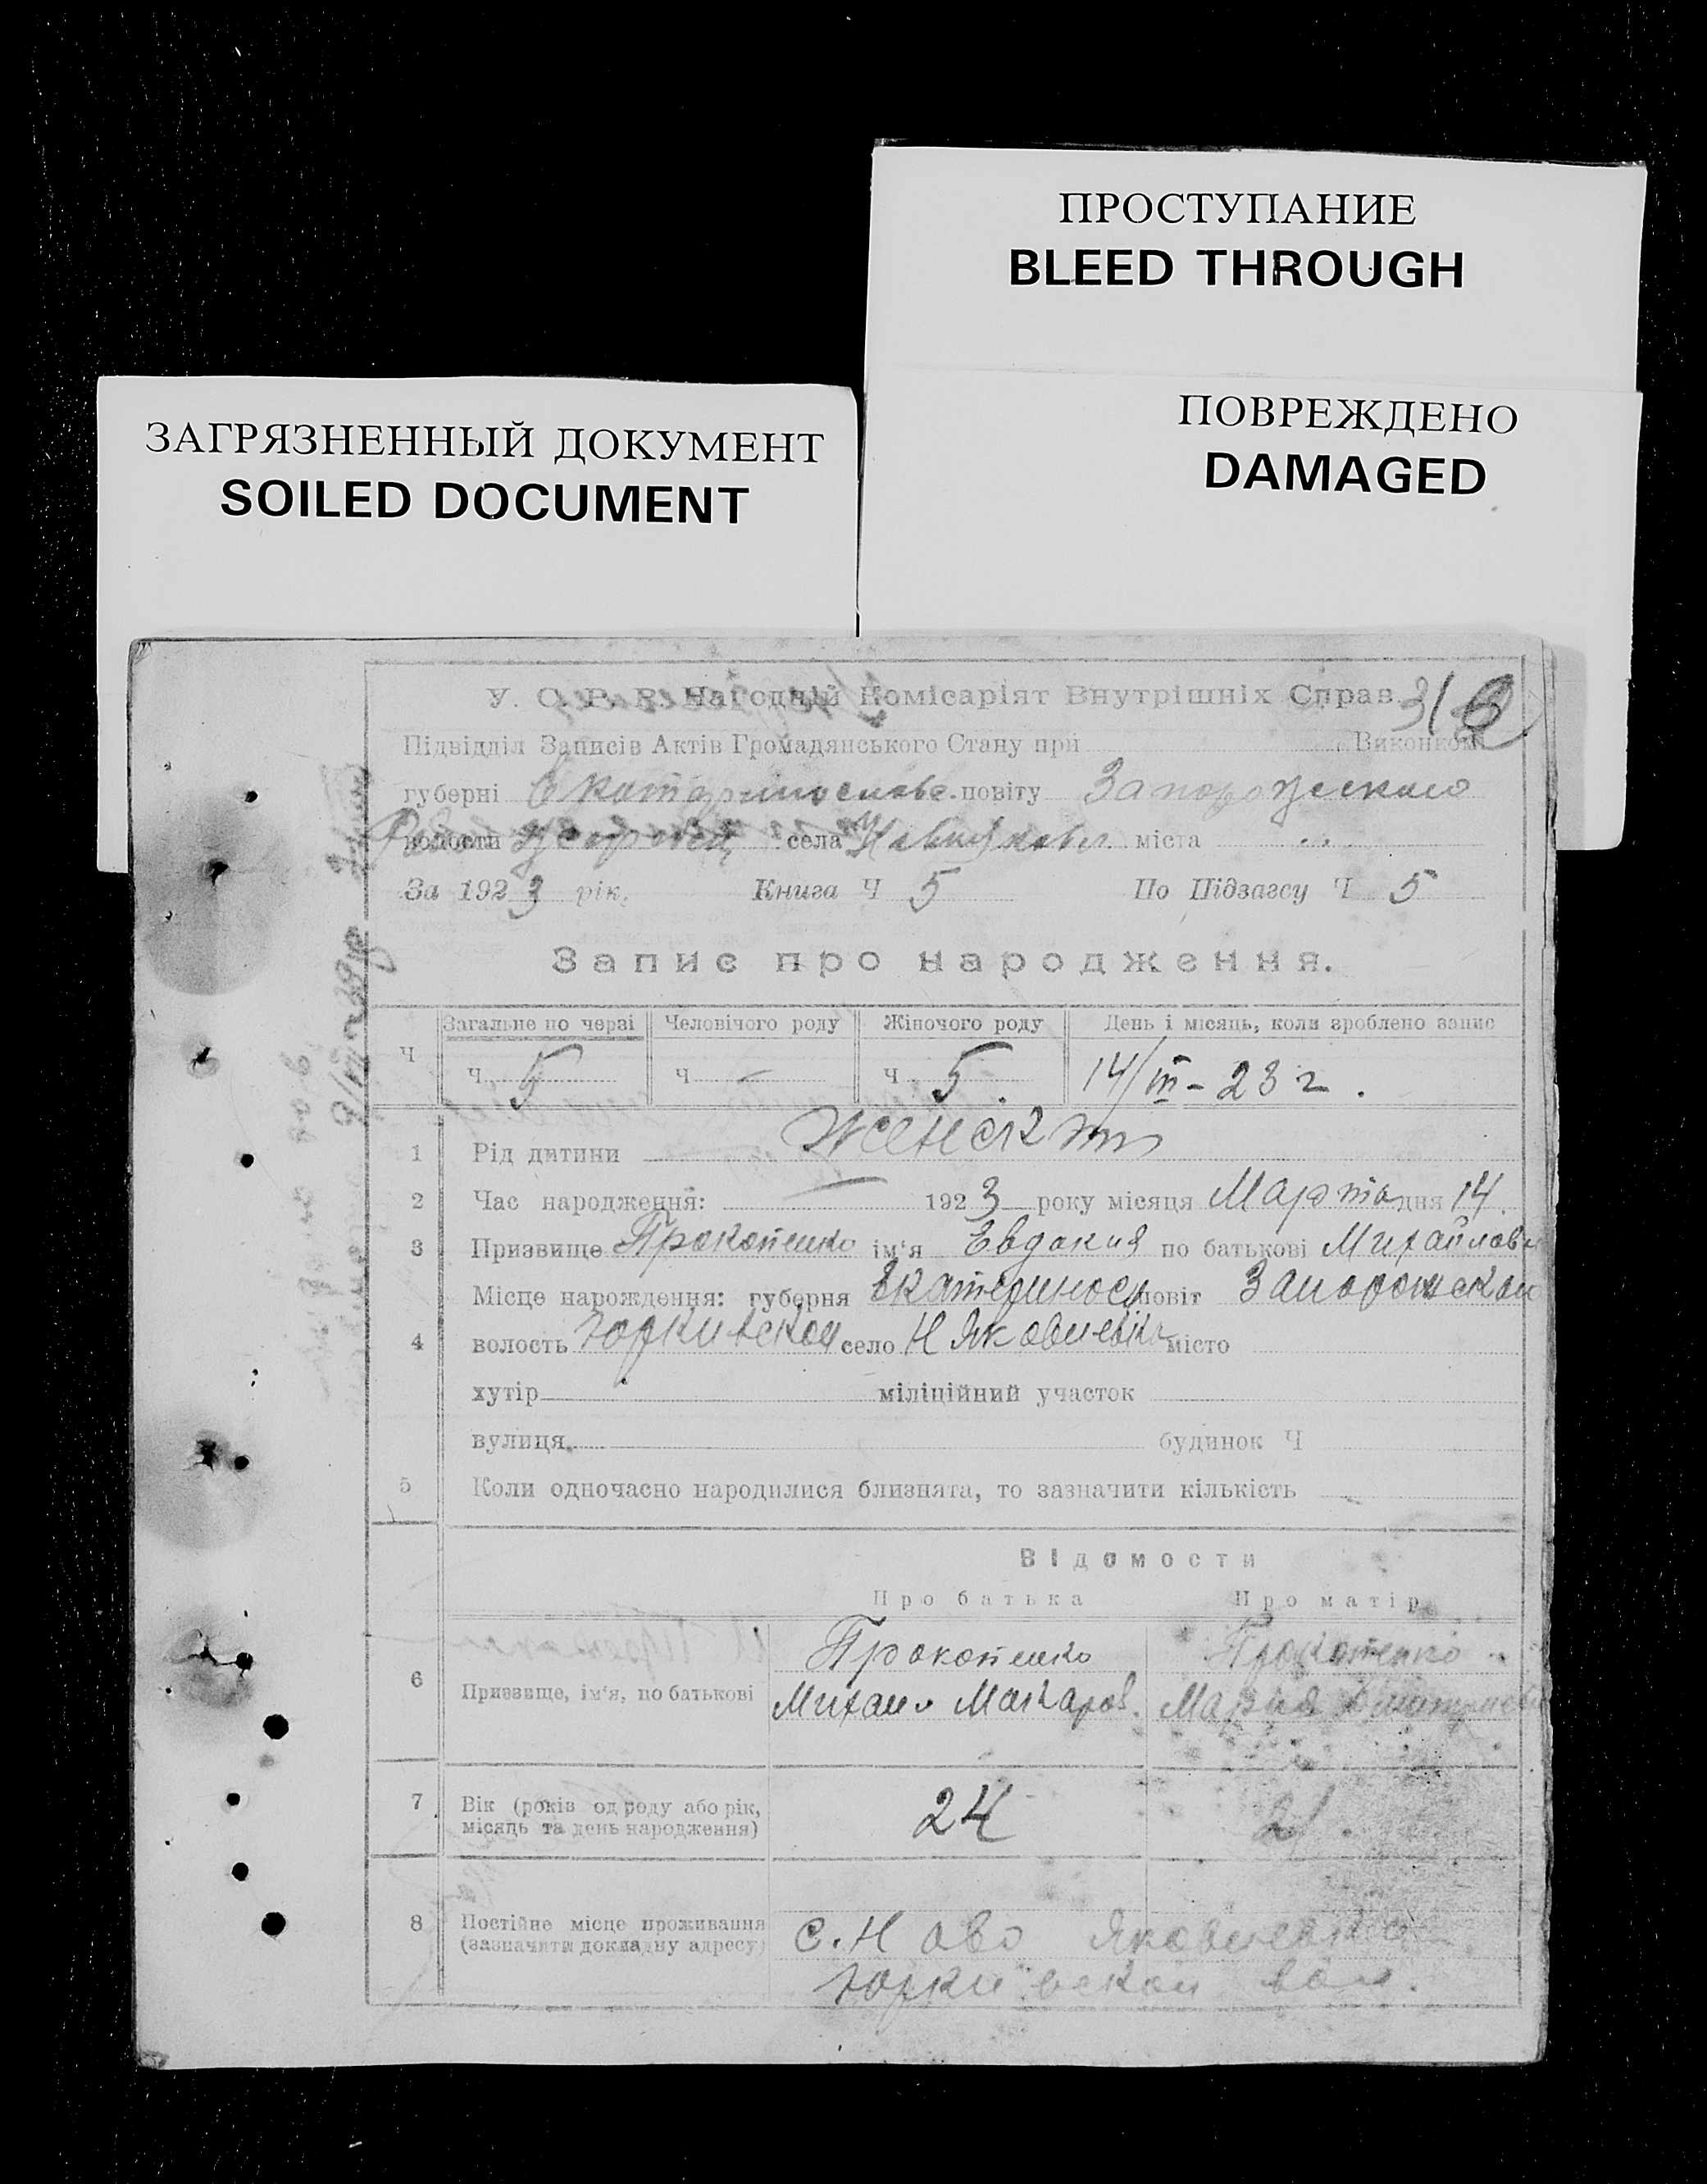 ПРОСТУПАНИЕ
BLEED THROUGH
ПОВРЕЖДЕНО
DAMAGED
ЗАГРЯЗНЕННЫЙ ДОКУМЕНТ
SOILED DOCUMENT
У. С. Р. Р. Народній Комісаріят Внутрішніх Справ.
Підвідділ Записів Актів Громадянського Стану при Виконкомі
губерні повіту
волости села міста
За 1923 рік. Книга Ч 5 По Підзагсу Ч 5
Запис про народження.
Загальне по черзі Человічого роду Жіночого роду День і місяць, коли зроблено запис
Ч Ч 5 Ч – Ч 5. 14/III – 23 г.
1 Рід дитини
2 Час народження: — 1923 року місяця Марта дня 14.
3 Призвище Прокопенко ім'я Евдокия по батькові Михайловн
Місце нарождення: губерня Екатеринос повіт
4 волость село Н Яковлевка місто
хутір міліційний участок
вулиця будинок Ч
5 Коли одночасно народилися близнята, то зазначити кількість
Відомости
Про батька Про матір
6 Призвище, ім'я, по батькові
Прокопенко Прокопенко
Михаил Макаров. Мария
7 Вік (років од роду або рік, місяць та день народження) 24 21.
8 Постійне місце проживання
(зазначити докладну адресу)
с. Ново Яковлевка
вол.